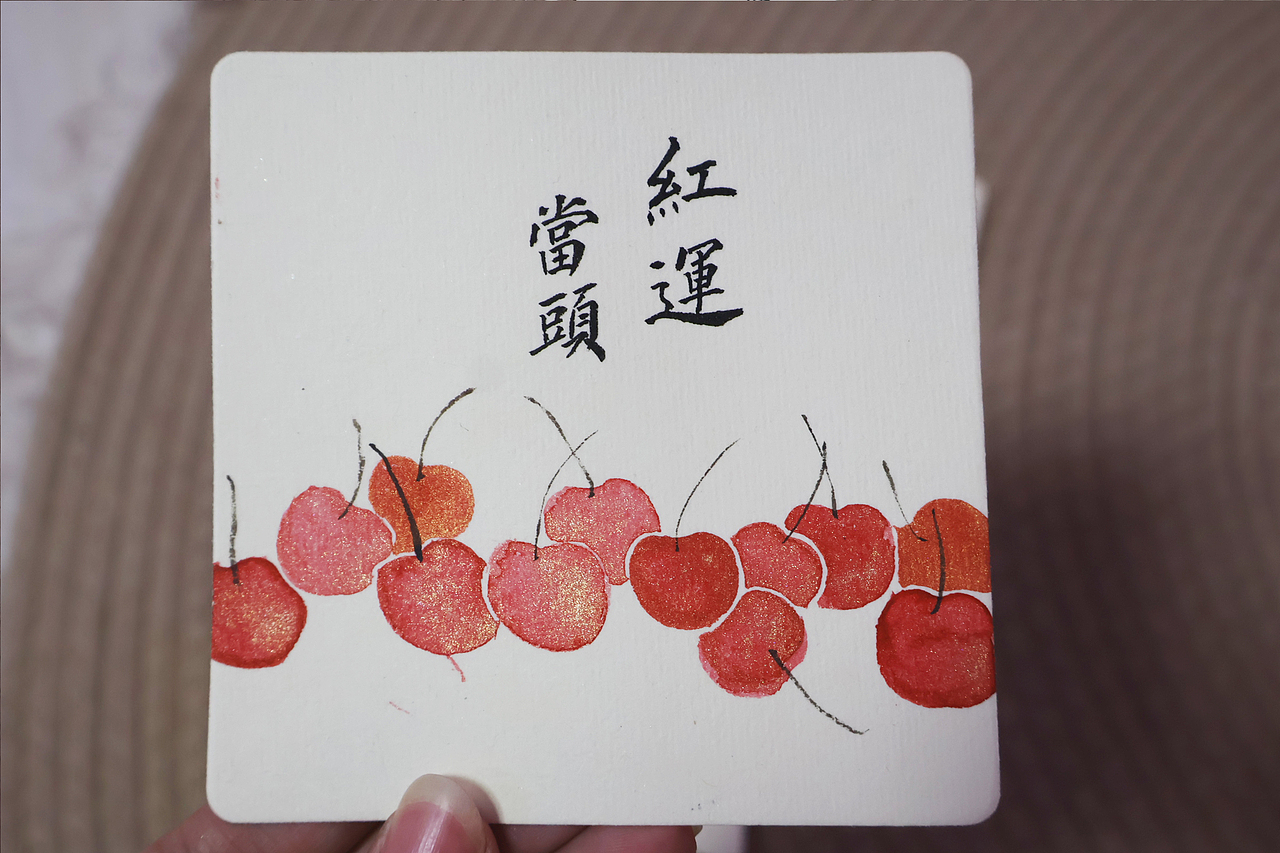 紅運
當頭